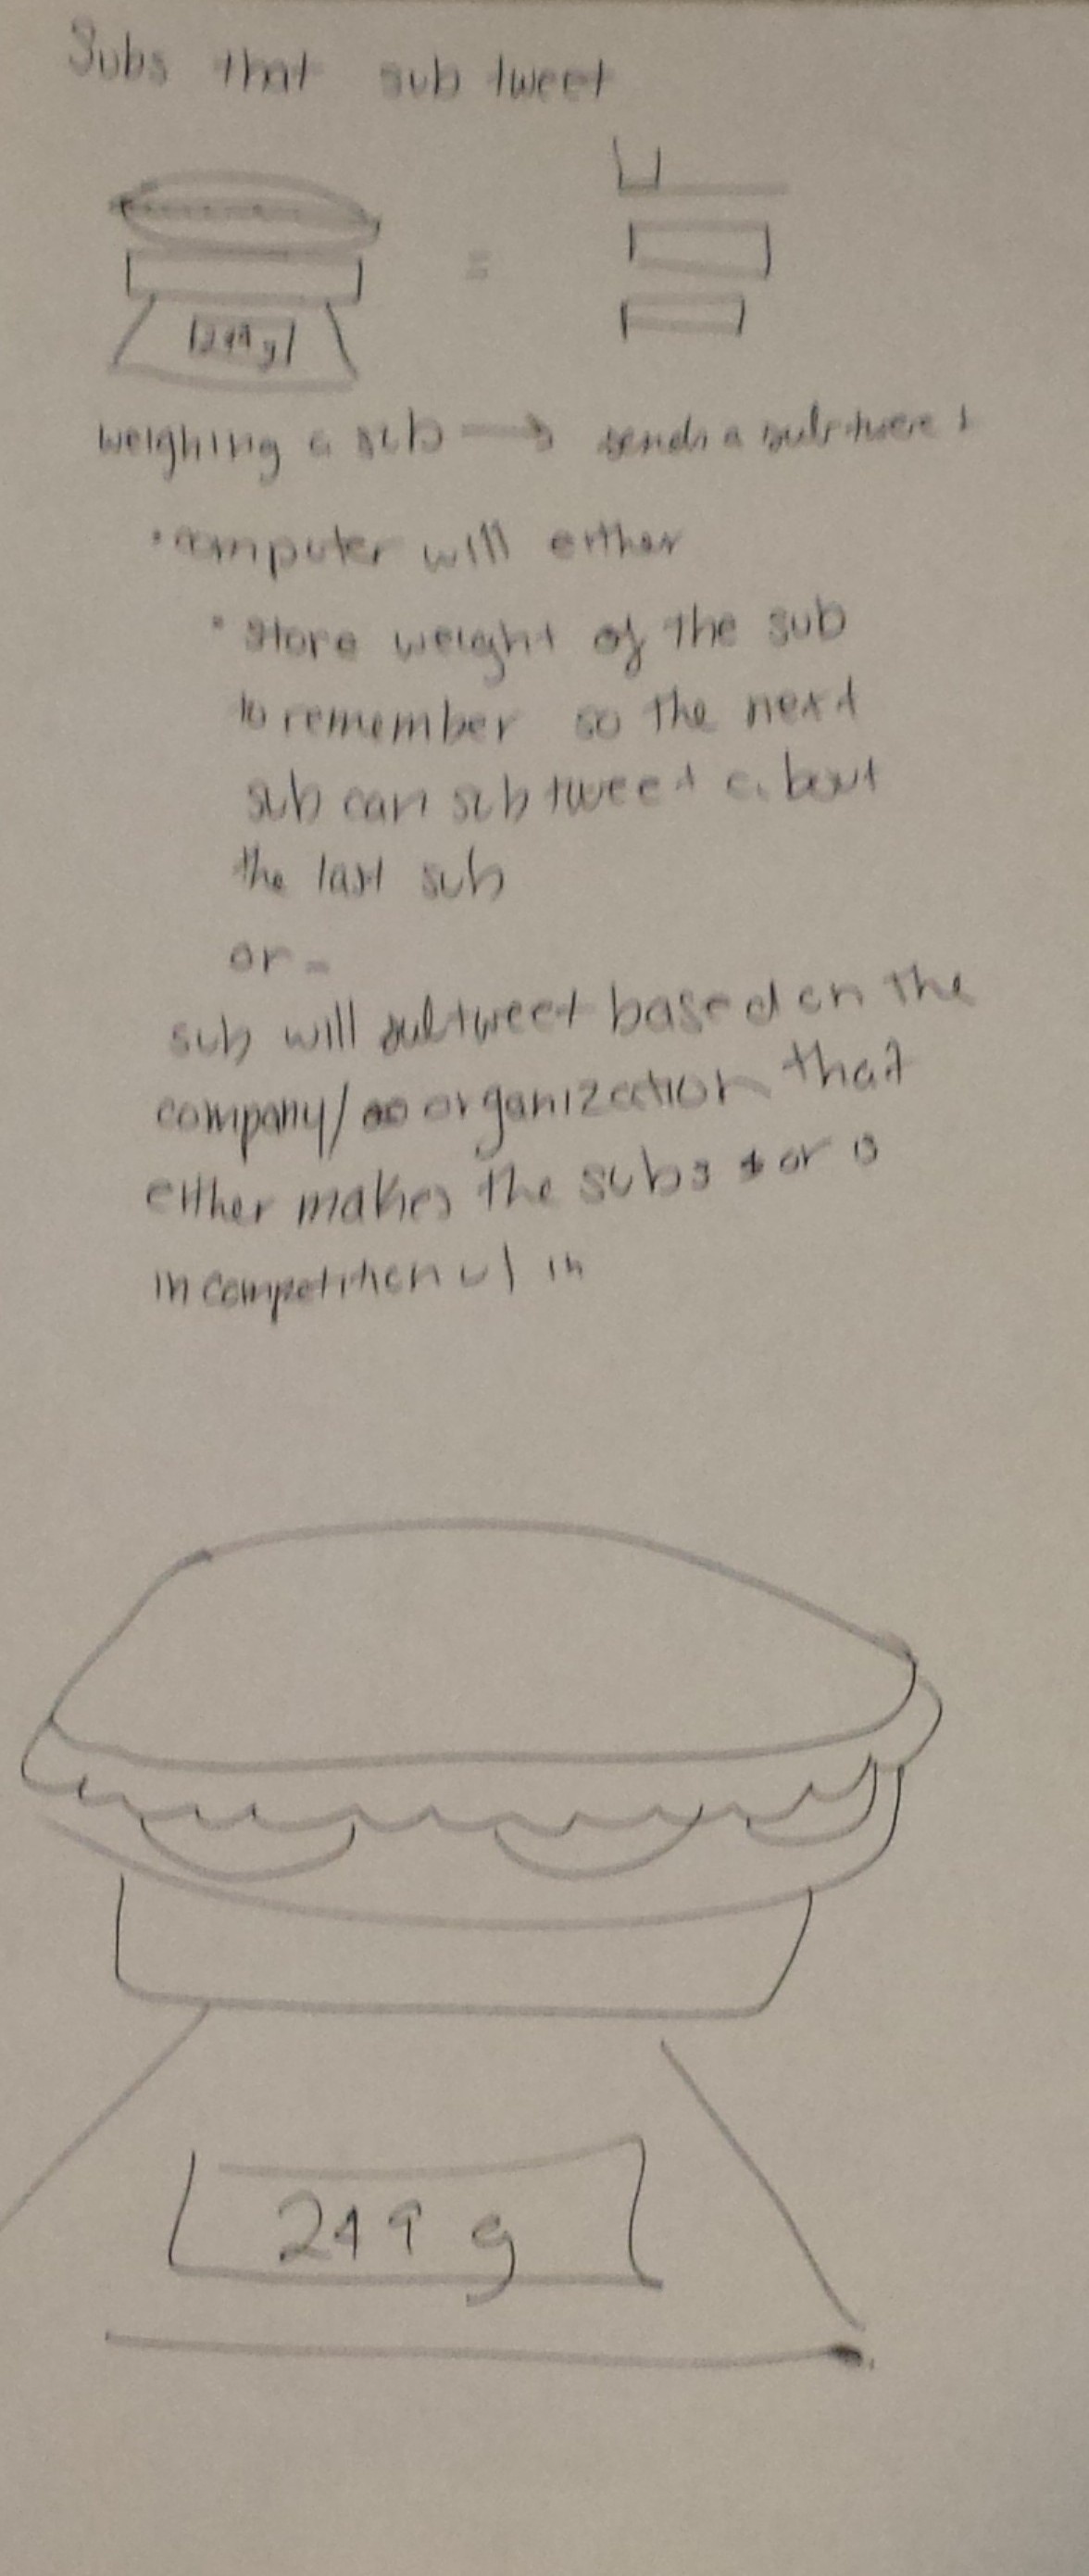 Subs that sub tweet
249 g
weighing a sub → sends a subtweet
• computer will either
• store weight of the sub
to remember so the next
sub can subtweet about
the last sub
or -
sub will subtweet based on the
company/ organization that
either makes the subs or is
in competition w/ in
249 g